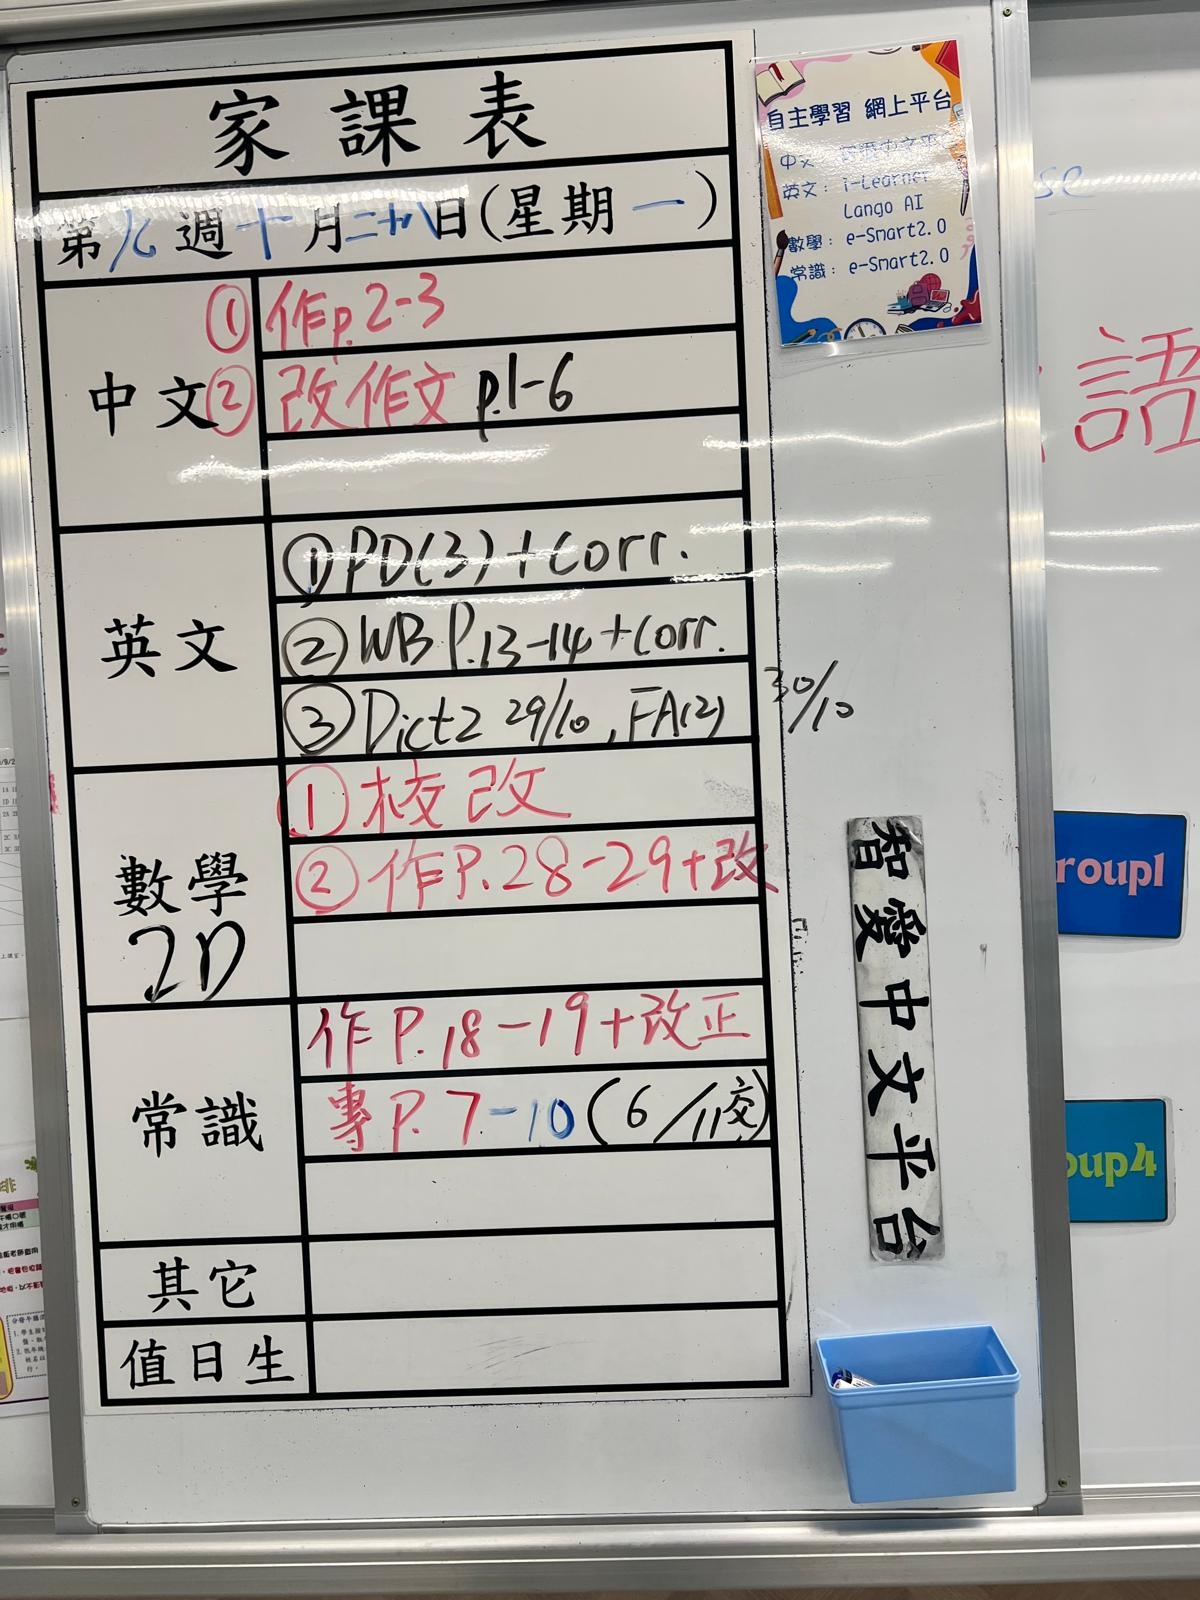 家課表
第九週十月二十八日(星期一)
中文
① 作p.2-3
② 改作文 p.1-6
英文
① PD(3)+corr.
② WB P.13-14+corr.
③ Dict2 29/10, FA(2) 30/10
數學
2D
① 校改
② 作P.28-29+改
常識
作P.18-19+改正
專P.7-10(6/11交)
其它
值日生
自主學習 網上平台
中文:
英文: i-Learner
Lango AI
數學: e-Smart2.0
常識: e-Smart2.0
智愛中文平台
語
se
roup1
oup4